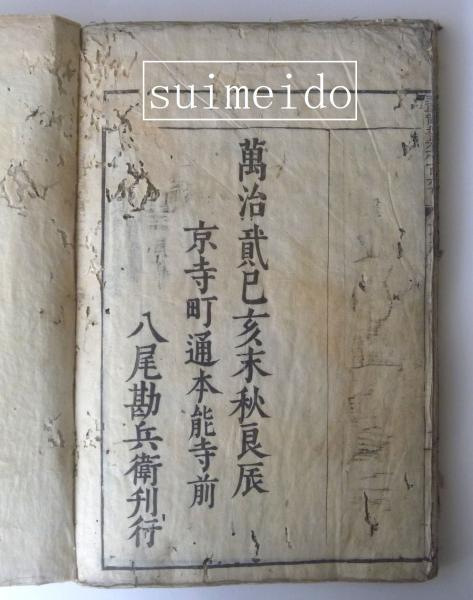 suimeido
萬治貳己亥末秋良辰
京寺町通本能寺前
八尾勘兵衛刊行